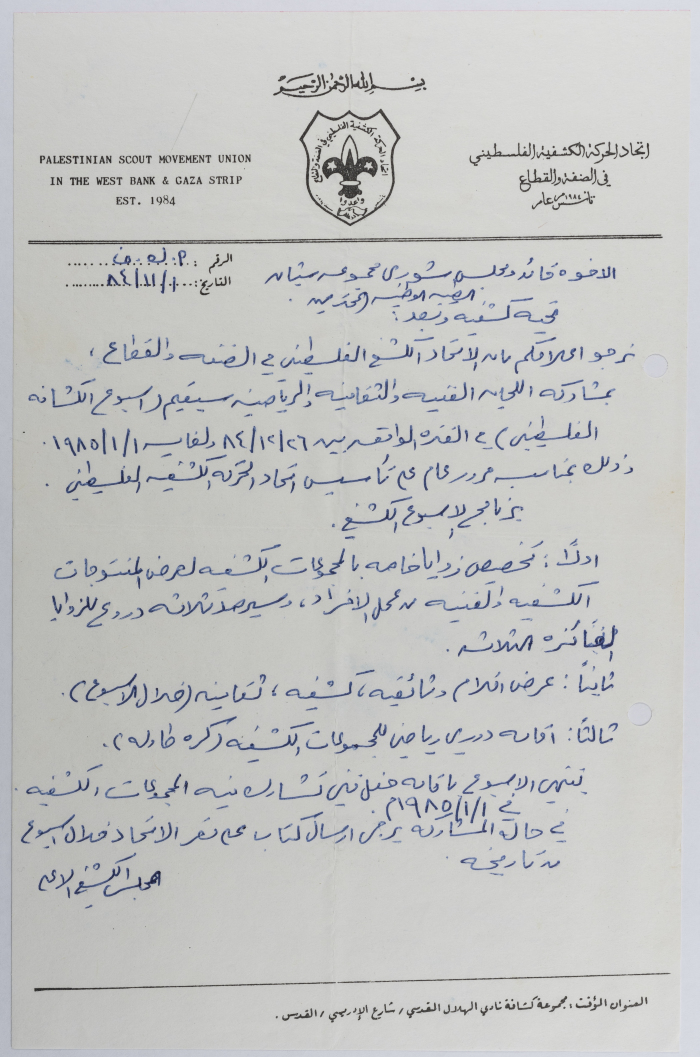 بسم الله الرحمن الرحيم
PALESTINIAN SCOUT MOVEMENT UNION
IN THE WEST BANK & GAZA STRIP
EST. 1984
اتحاد الحركة الكشفية الفلسطيني
في الضفة والقطاع
تأسس عام ١٩٨٤م
الرقم :
التاريخ :
الاخوة قائد ومجلس شورى مجموعة
المحترمين .
تحية كشفية وبعد :
نرجو اعلامكم بان الاتحاد الكشفي الفلسطيني في الضفة والقطاع ،
بمشاركة اللجان الفنية والثقافية والرياضية سيقيم (اسبوع الكشافة
الفلسطيني) في الفترة الواقعة بين ٨٤/١٢/٢٦ ولغاية ١٩٨٥/١/١ .
وذلك بمناسبة مرور عام على تأسيس اتحاد الحركة الكشفية الفلسطيني .
برنامج الاسبوع الكشفي .
اولاً : تخصيص زوايا خاصة بالمجموعات الكشفية لعرض المنتوجات
الكشفية والفنية من عمل الافراد ، وسيرصد ثلاثة دروع للزوايا
الفائزة الثلاث .
ثانياً : عرض افلام وثائقية ، كشفية ، ثقافية (خلال الاسبوع) .
ثالثاً : اقامة دوري رياضي للمجموعات الكشفية (كرة طاولة) .
ينتهي الاسبوع باقامة حفل فني تشارك فيه المجموعات الكشفية .
في ١٩٨٥/١/١م
في حالة المشاركة يرجى ارسال كتاب على مقر الاتحاد خلال اسبوع
من تاريخه .
مجلس الكشفي الاعلى
العنوان المؤقت : مجموعة كشافة نادي الهلال القدسي / شارع الإدريسي / القدس .